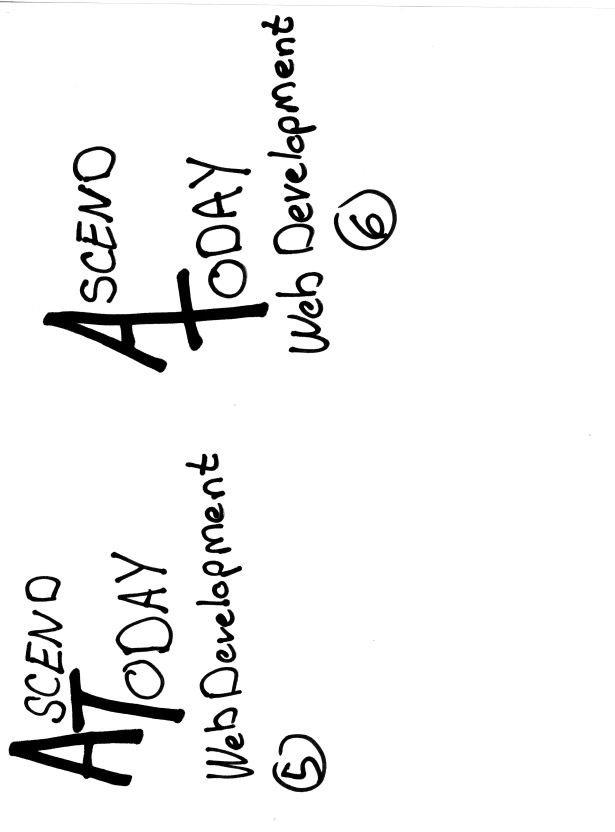 ASCEND
TODAY
Web Development
5
ASCEND
TODAY
Web Development
6